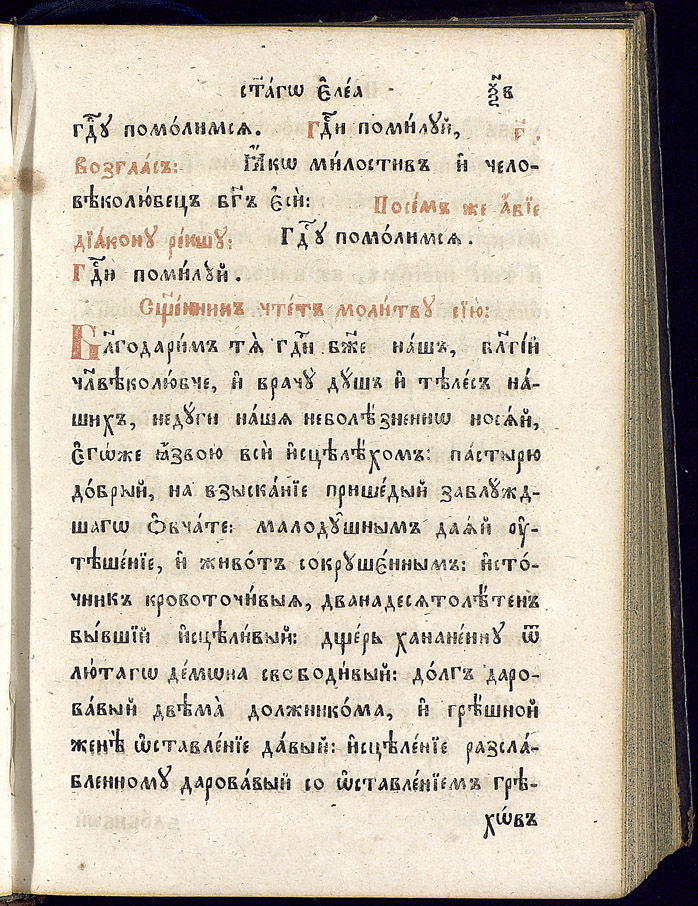 ст҃а́гѡ є҆ле́а ѯ҃в
гдⷭ҇ꙋ помо́лимсѧ. Гдⷭ҇и поми́лꙋй, г҃.
Возгла́съ: Ꙗ҆́кѡ ми́лостивъ и҆ чело-
вѣколю́бецъ бг҃ъ є҆сѝ: Посе́мъ же а҆́бїе
дїа́конꙋ ре́кшꙋ: Гдⷭ҇ꙋ помо́лимсѧ.
Гдⷭ҇и поми́лꙋй.
Сщ҃е́нникъ чте́тъ моли́твꙋ сїю̀:
Бл҃годари́мъ тѧ̀ гдⷭ҇и бж҃е на́шъ, бл҃гі́й
чл҃вѣколю́бче, и҆ врачꙋ̀ дꙋ́шъ и҆ тѣле́съ на́-
шихъ, недꙋ́ги на́шѧ неболѣ́зненнѡ носѧ́й,
є҆гѡ́же ꙗ҆́звою всѝ и҆сцѣлѣ́хомъ: па́стырю
до́брый, на взыска́нїе прише́дый заблꙋ́жд-
шагѡ ѻ҆вча́те: малодꙋ́шнымъ даѧ́й ᲂу҆-
тѣше́нїе, и҆ живо́тъ сокрꙋше́ннымъ: и҆сто́-
чникъ кровоточи́выѧ, дванадесѧтолѣ́тенъ
бы́вшїй и҆сцѣли́вый: дще́рь ханане́инꙋ ѿ
лю́тагѡ де́мѡна свободи́вый: до́лгъ даро-
ва́вый двѣма̀ должнико́ма, и҆ грѣ́шной
женѣ̀ ѡ҆ставле́нїе да́вый: и҆сцѣле́нїе разсла́-
бленномꙋ дарова́вый со ѡ҆ставле́нїемъ грѣ-
хѡ́въ